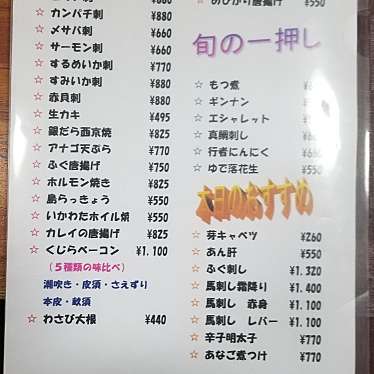 ¥880
☆ カンパチ刺 ¥880
☆ メサバ刺 ¥660
☆ サーモン刺 ¥660
☆ するめいか刺 ¥770
☆ すみいか刺 ¥880
☆ 赤貝刺 ¥880
☆ 生カキ ¥495
☆ 銀だら西京焼 ¥825
☆ アナゴ天ぷら ¥770
☆ ふぐ唐揚げ ¥750
☆ ホルモン焼き ¥825
☆ 島らっきょう ¥550
☆ いかわたホイル焼 ¥550
☆ カレイの唐揚げ ¥825
☆ くじらベーコン ¥1.100
(5種類の味比べ)
潮吹き・皮須・さえずり
本皮・畝須
☆ わさび大根 ¥440
めひかり唐揚げ ¥550
旬の一押し
☆ もつ煮
☆ ギンナン
☆ エシャレット
☆ 真鯛刺し
☆ 行者にんにく
☆ ゆで落花生 ¥550
本日のおすすめ
☆ 芽キャベツ ¥260
☆ あん肝 ¥550
☆ ふぐ刺し ¥1.320
☆ 馬刺し霜降り ¥1.400
☆ 馬刺し 赤身 ¥1.100
☆ 馬刺し レバー ¥1.100
☆ 辛子明太子 ¥770
☆ あなご煮つけ ¥770